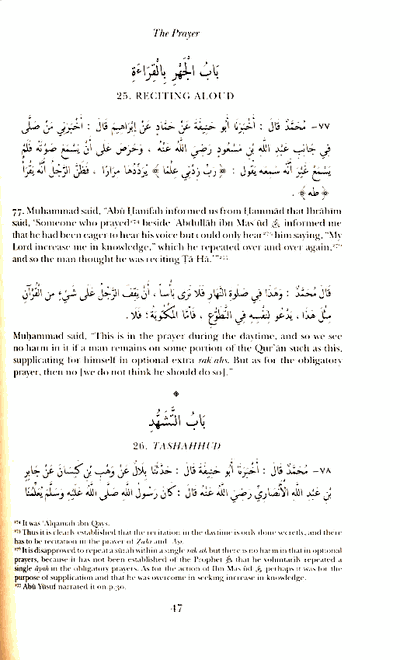 The Prayer
بَابُ الْجَهْرِ بِالْقِرَاءَةِ
25. RECITING ALOUD
٧٧- مُحَمَّدٌ قَالَ : أَخْبَرَنَا أَبُو حَنِيفَةَ عَنْ حَمَّادٍ عَنْ إِبْرَاهِيمَ قَالَ : أَخْبَرَنِي مَنْ صَلَّى
فِي جَانِبِ عَبْدِ اللَّهِ بْنِ مَسْعُودٍ رَضِيَ اللَّهُ عَنْهُ ، وَحَرَصَ عَلَى أَنْ يَسْمَعَ صَوْتَهُ فَلَمْ
يَسْمَعْ غَيْرَ أَنَّهُ سَمِعَهُ يَقُولُ : ﴿ رَبِّ زِدْنِي عِلْمًا ﴾ يُرَدِّدُهَا مِرَارًا ، فَظَنَّ الرَّجُلُ أَنَّهُ يَقْرَأُ
﴿ طه ﴾ .
77. Muḥammad said, “Abū Ḥanīfah informed us from Ḥammād that Ibrāhīm
said, ‘Someone who prayed⁴⁷⁴ beside ʿAbdullāh ibn Masʿūd ؓ informed me
that he had been eager to hear his voice but could only hear⁴⁷⁵ him saying, “My
Lord increase me in knowledge,” which he repeated over and over again,⁴⁷⁶
and so the man thought he was reciting Ṭā Hā.’”⁴⁷⁷
قَالَ مُحَمَّدٌ : وَهَذَا فِي صَلَوةِ النَّهَارِ فَلَا نَرَى بَأْسًا ، أَنْ يَقِفَ الرَّجُلُ عَلَى شَيْءٍ مِنَ الْقُرْآنِ
مِثْلَ هَذَا ، يَدْعُو لِنَفْسِهِ فِي التَّطَوُّعِ ، فَأَمَّا الْمَكْتُوبَةُ : فَلَا .
Muḥammad said, “This is in the prayer during the daytime, and so we see
no harm in it if a man remains on some portion of the Qurʾān such as this,
supplicating for himself in optional extra rakʿahs. But as for the obligatory
prayer, then no [we do not think he should do so].”
بَابُ التَّشَهُّدِ
26. TASHAHHUD
٧٨- مُحَمَّدٌ قَالَ : أَخْبَرَنَا أَبُو حَنِيفَةَ قَالَ : حَدَّثَنَا بِلَالٌ عَنْ وَهْبِ بْنِ كَيْسَانَ عَنْ جَابِرِ
بْنِ عَبْدِ اللَّهِ الْأَنْصَارِيِّ رَضِيَ اللَّهُ عَنْهُ قَالَ : كَانَ رَسُولُ اللَّهِ صَلَّى اللَّهُ عَلَيْهِ وَسَلَّمَ يُعَلِّمُنَا
⁴⁷⁴ It was ʿAlqamah ibn Qays.
⁴⁷⁵ Thus it is clearly established that the recitation in the daytime is only done secretly, and there
has to be recitation in the prayer of Ẓuhr and ʿAṣr.
⁴⁷⁶ It is disapproved to repeat a sūrah within a single rakʿah but there is no harm that in optional
prayers, because it has not been established of the Prophet ﷺ that he voluntarily repeated a
single āyah in the obligatory prayers. As for the action of Ibn Masʿūd ؓ perhaps it was for the
purpose of supplication and that he was overcome in seeking increase in knowledge.
⁴⁷⁷ Abū Yūsuf narrated it on p.30.
47